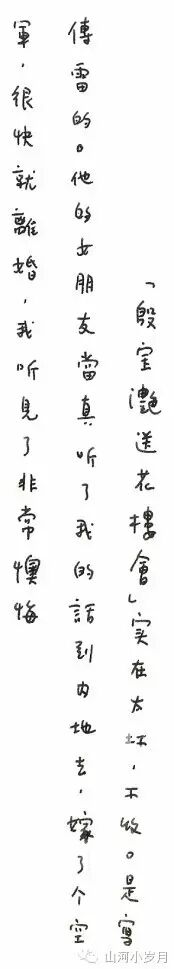 「殷宝灧送花樓會」实在太坏，不收。是寫
傅雷的。他的女朋友當真听了我的話到内地去，嫁了个空
軍，很快就離婚，我听見了非常懊悔
山河小岁月